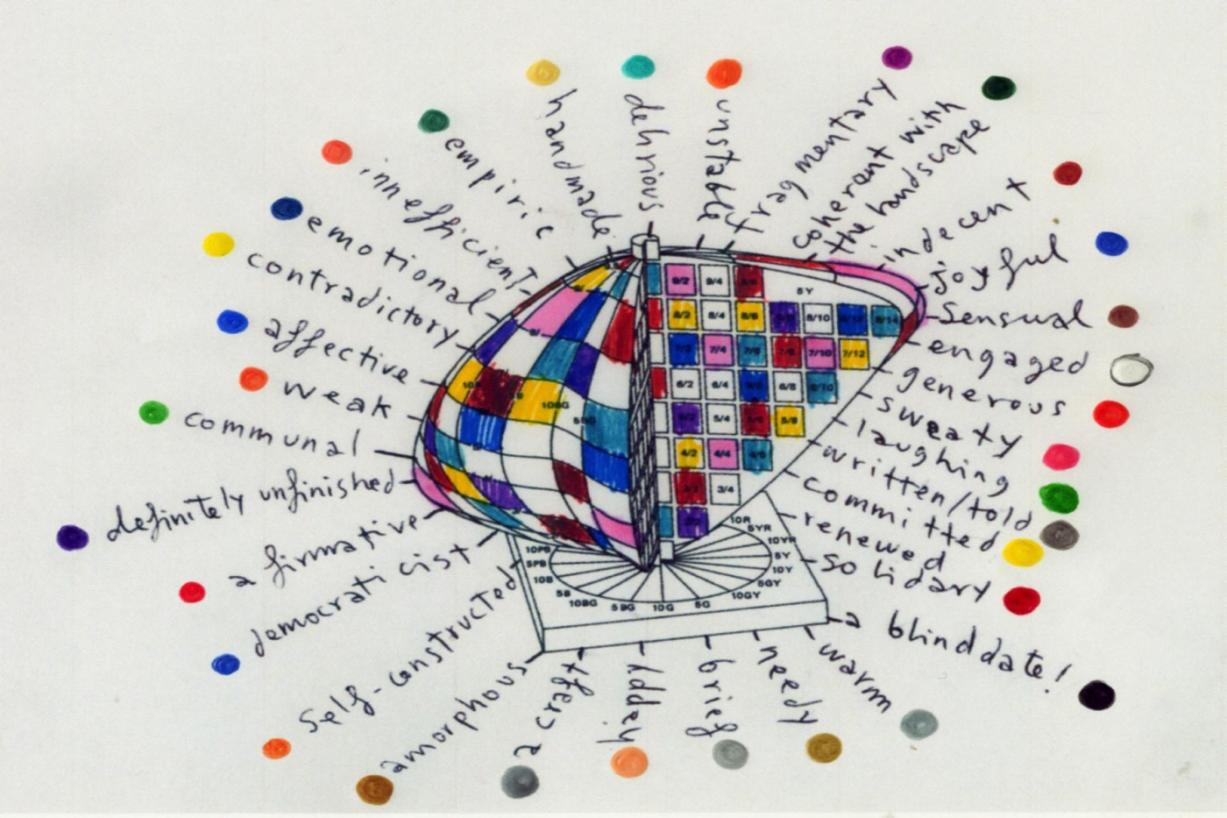 handmade
delirious
unstable
fragmentary
coherent with
the landscape
indecent
joyful
Sensual
engaged
generous
sweaty
laughing
written/told
committed
renewed
solidary
a blind date!
warm
needy
brief
happy
a craft
amorphous
self-constructed
democraticist
a firmative
definitely unfinished
communal
weak
affective
contradictory
emotional
innefficient
empiric
5Y
9/2 9/4
8/2 8/4 8/6 8/10 8/12 8/14
7/2 7/4 7/6 7/8 7/10 7/12
6/2 6/4 6/6 6/8 6/10
5/2 5/4 5/6 5/8
4/2 4/4 4/6
3/2 3/4
2/2
10BG
10R
5YR
10YR
5Y
10Y
5GY
10GY
5G
10G
5BG
10BG
5B
10B
5PB
10PB